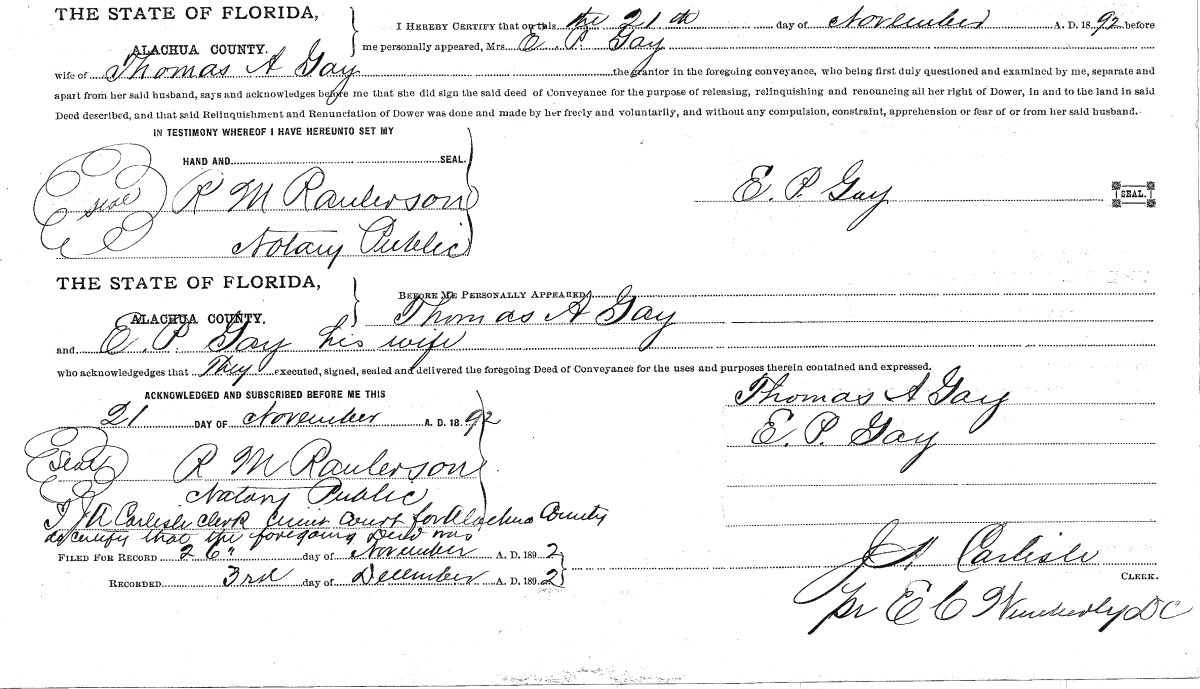 THE STATE OF FLORIDA,
ALACHUA COUNTY.
I HEREBY CERTIFY that on this the 21th day of November A. D. 1892 before
me personally appeared, Mrs. E. P. Gay
wife of Thomas A Gay the grantor in the foregoing conveyance, who being first duly questioned and examined by me, separate and
apart from her said husband, says and acknowledges before me that she did sign the said deed of Conveyance for the purpose of releasing, relinquishing and renouncing all her right of Dower, in and to the land in said
Deed described, and that said Relinquishment and Renunciation of Dower was done and made by her freely and voluntarily, and without any compulsion, constraint, apprehension or fear of or from her said husband.
IN TESTIMONY WHEREOF I HAVE HEREUNTO SET MY
HAND AND SEAL.
Seal R M Raulerson
Notary Public
E. P. Gay SEAL.
THE STATE OF FLORIDA,
ALACHUA COUNTY.
BEFORE ME PERSONALLY APPEARED
Thomas A Gay
and E. P. Gay his wife
who acknowledgedges that They executed, signed, sealed and delivered the foregoing Deed of Conveyance for the uses and purposes therein contained and expressed.
ACKNOWLEDGED AND SUBSCRIBED BEFORE ME THIS
21 DAY OF November A. D. 1892
Seal R M Raulerson
Notary Public
Thomas A Gay
E. P. Gay
I J A Carlisle Clerk Circuit Court for Alachua County
do certify that the foregoing Deed was
FILED FOR RECORD 26" day of November A. D. 1892
RECORDED 3rd day of December A. D. 1892
J A Carlisle
CLERK.
pr E C Wimberly DC